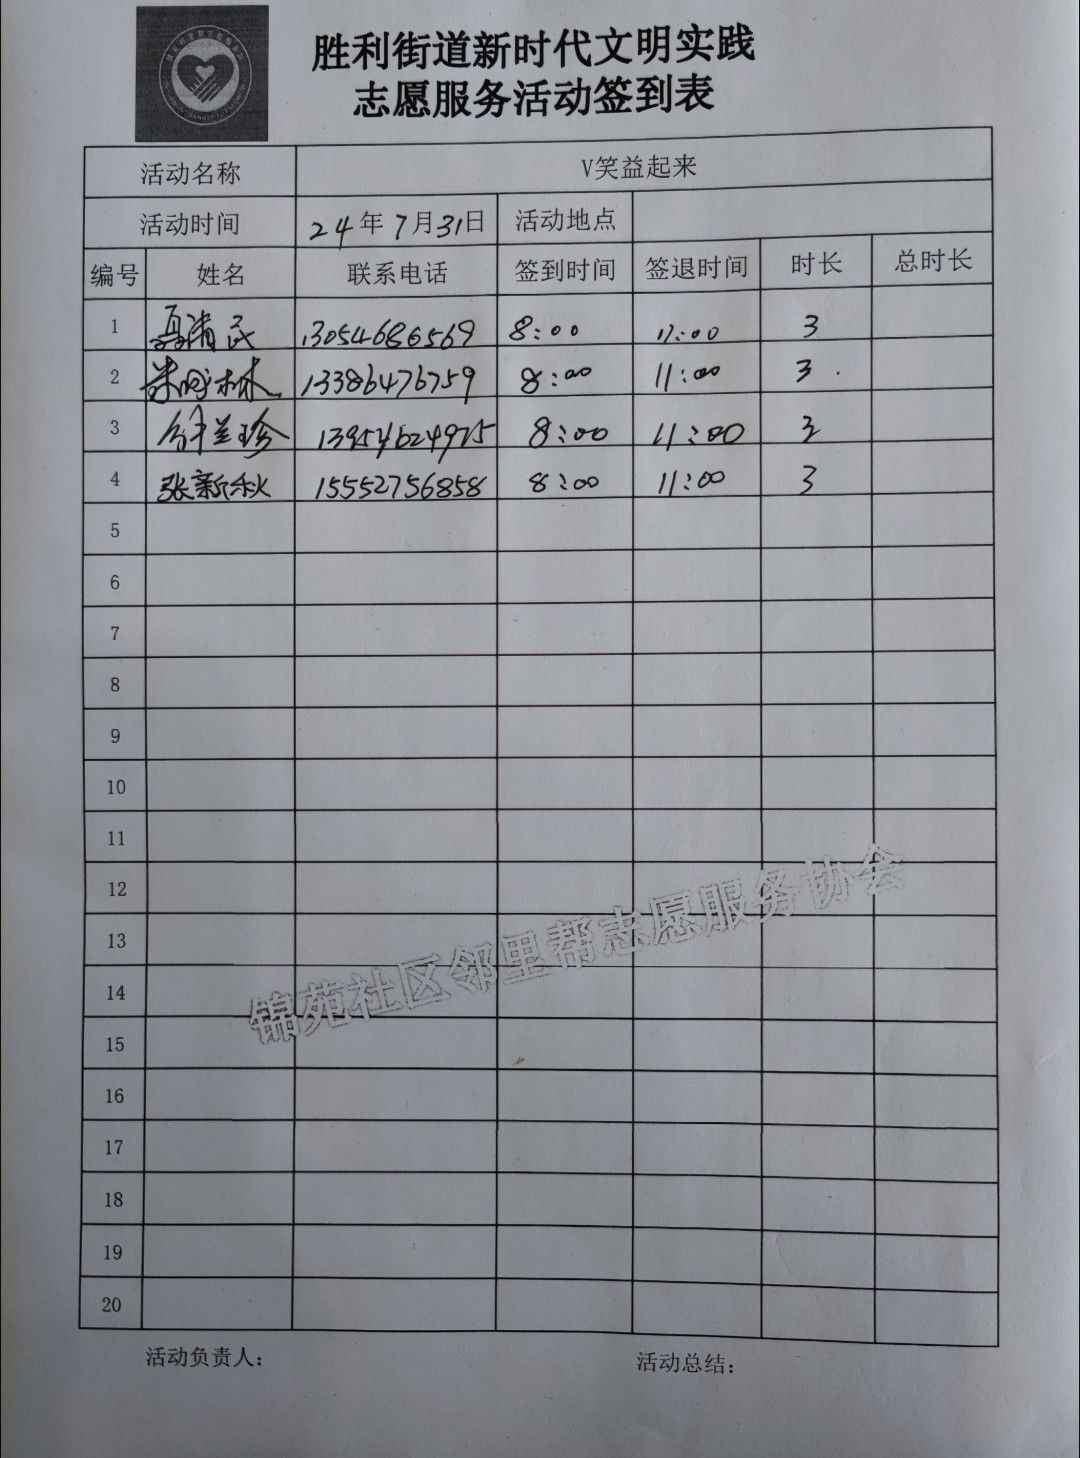 胜利街道新时代文明实践
志愿服务活动签到表
活动名称 V笑益起来
活动时间 24年7月31日 活动地点
编号 姓名 联系电话 签到时间 签退时间 时长 总时长
1 13054686569 8:00 11:00 3
2 13386476759 8:00 11:00 3
3 13954624975 8:00 11:00 3
4 张新秋 15552756858 8:00 11:00 3
5
6
7
8
9
10
11
12
13
14
15
16
17
18
19
20
锦苑社区邻里帮志愿服务协会
活动负责人： 活动总结：